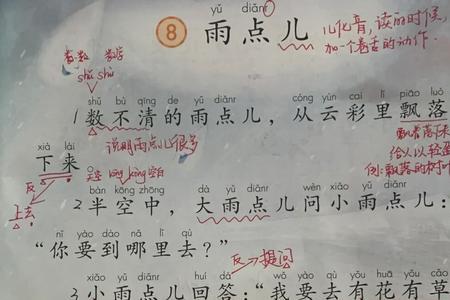 yǔ diǎnr
8 雨点儿
儿化音，读的时候，
加一个卷舌的动作．
shǔ shù
shǔ bù qīng de yǔ diǎnr cóng yún cai lǐ piāo luò
1数不清的雨点儿，从云彩里飘落
说明雨点儿很多
飘着落下来
给人以轻盈
例：飘落的树叶
xià lái
下来
反
上去
bàn kōng zhōng dà yǔ diǎnr wèn xiǎo yǔ diǎnr
2半空中，大雨点儿问小雨点儿：
nǐ yào dào nǎ lǐ qù
“你要到哪里去？”
反→提问
xiǎo yǔ diǎnr huí dá wǒ yào qù yǒu huā yǒu cǎo
3小雨点儿回答：“我要去有花有草